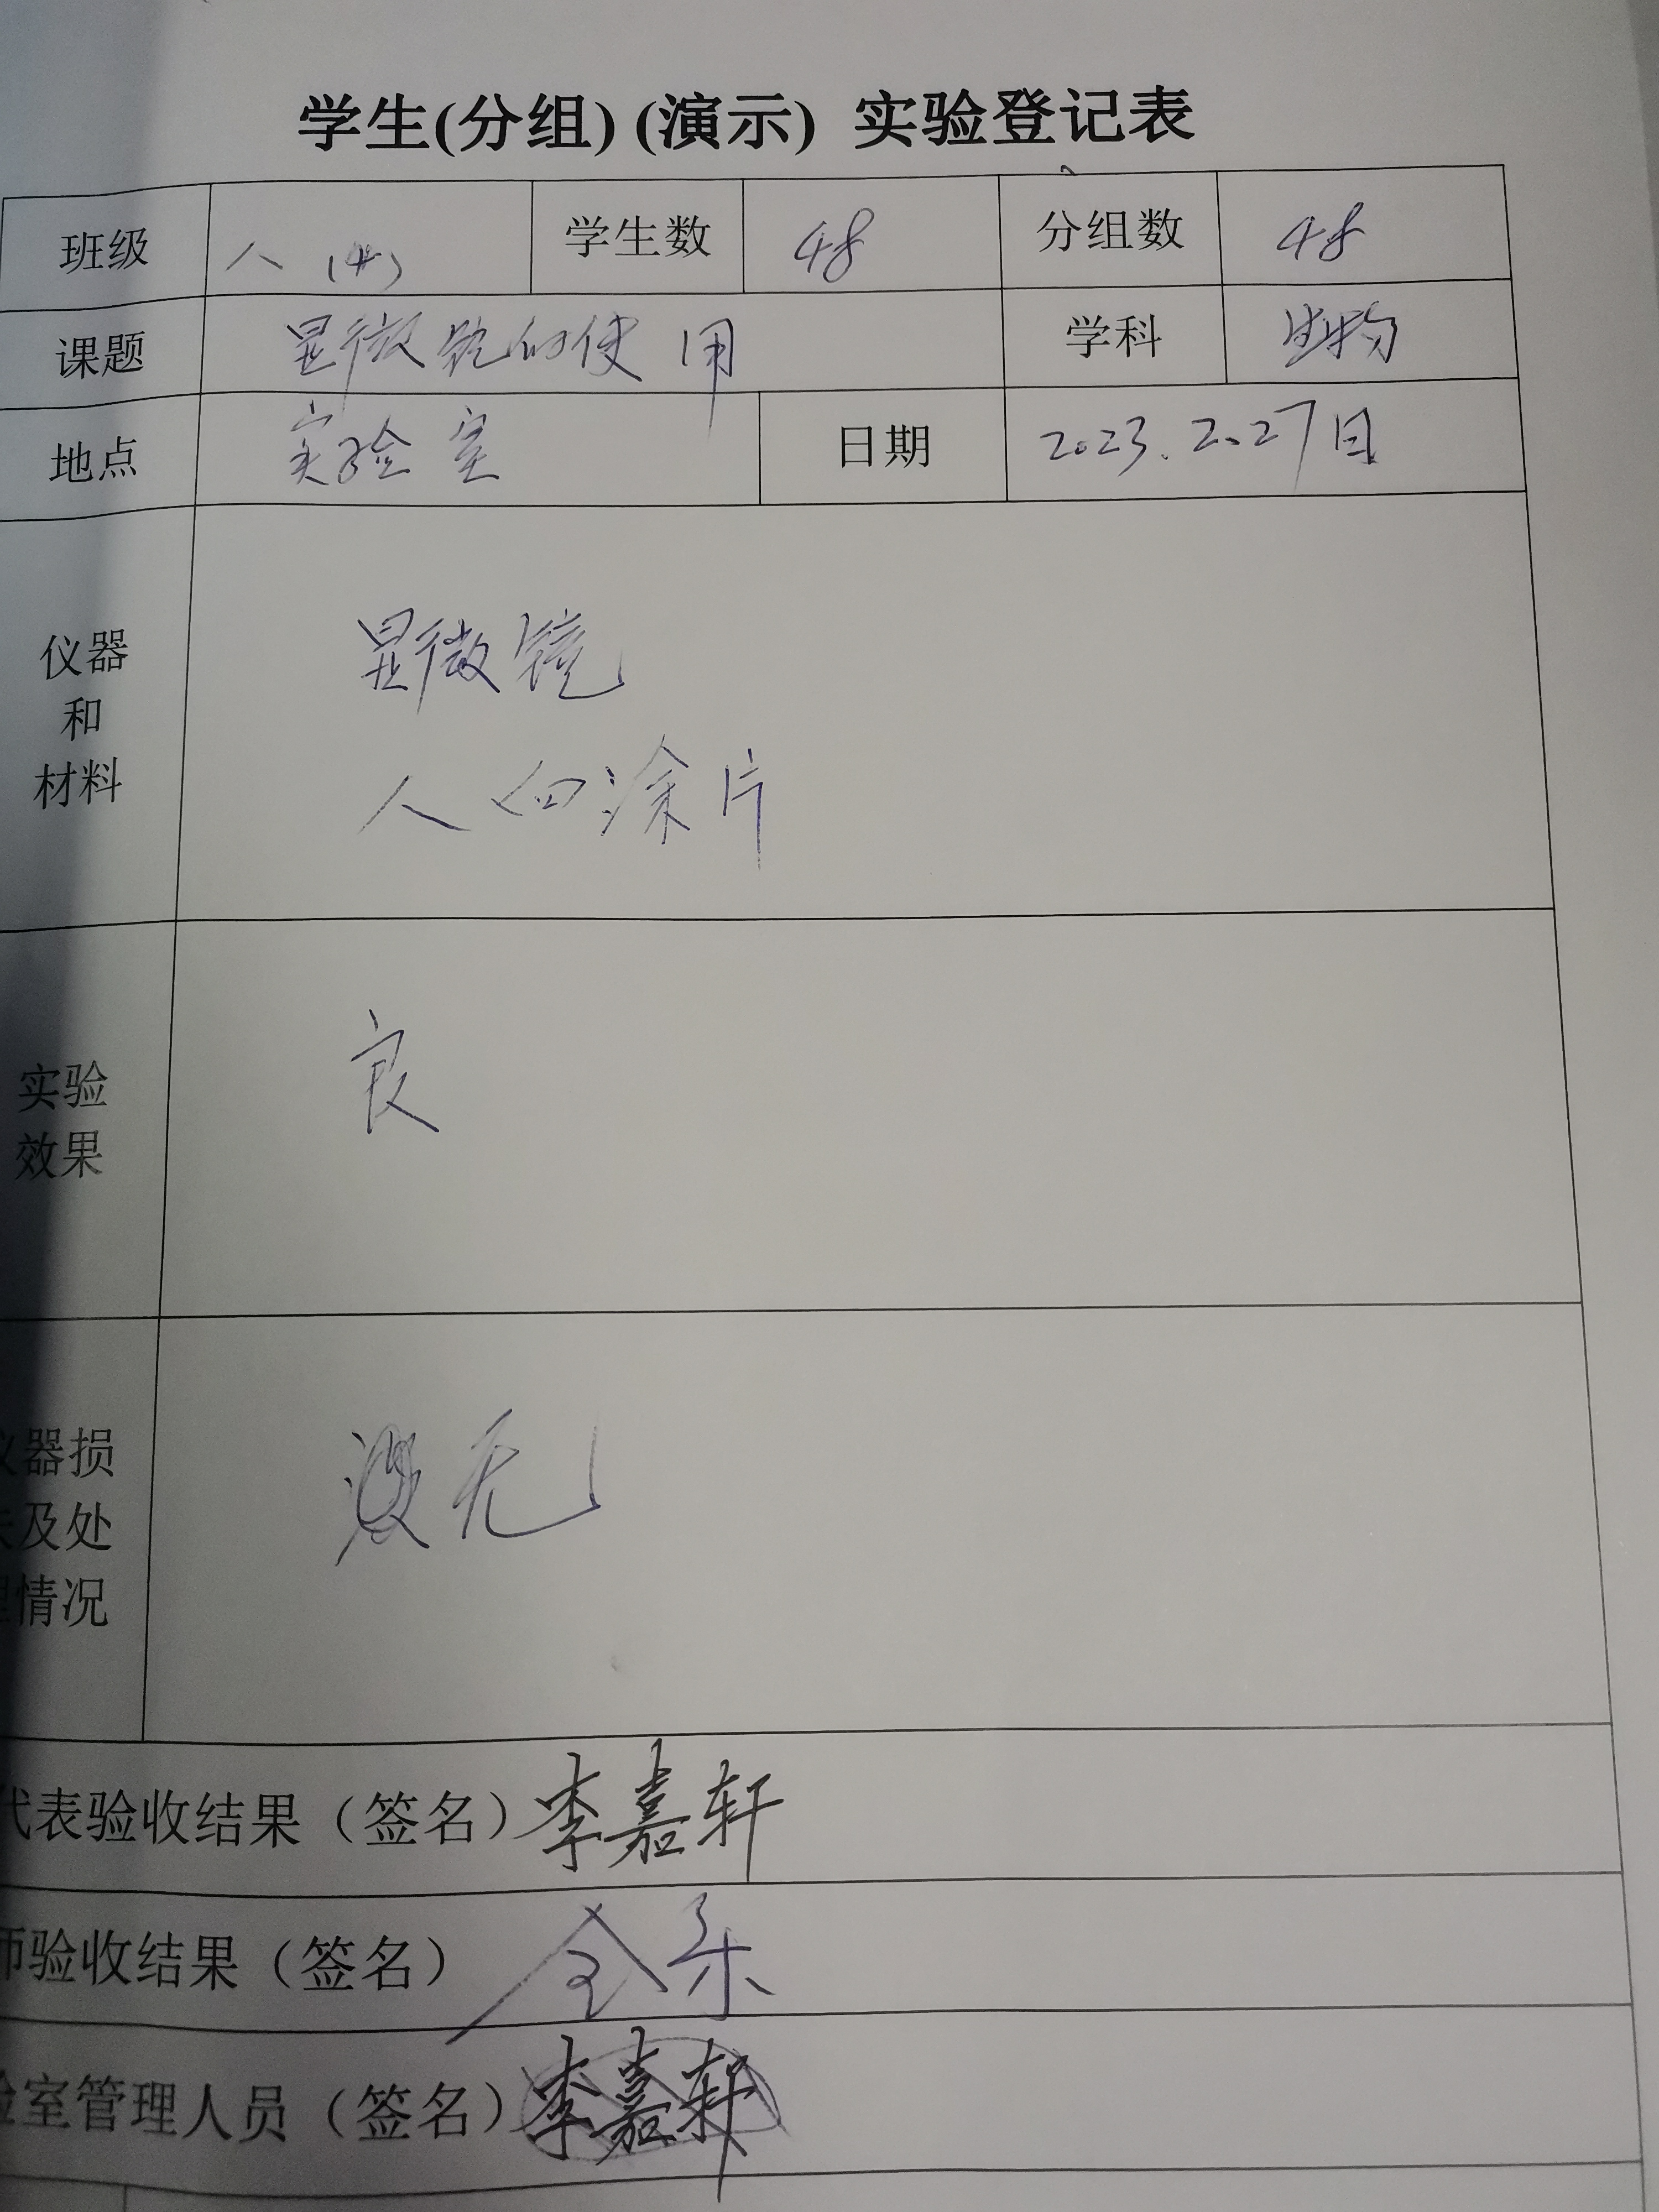 学生(分组) (演示) 实验登记表
班级 八 (4) 学生数 48 分组数 48
课题 显微镜的使用 学科 生物
地点 实验室 日期 2023.2.27日
仪器
和
材料
显微镜
人血涂片
实验
效果
良
仪器损
失及处
理情况
无
代表验收结果（签名）李嘉轩
师验收结果（签名）
验室管理人员（签名）李嘉轩